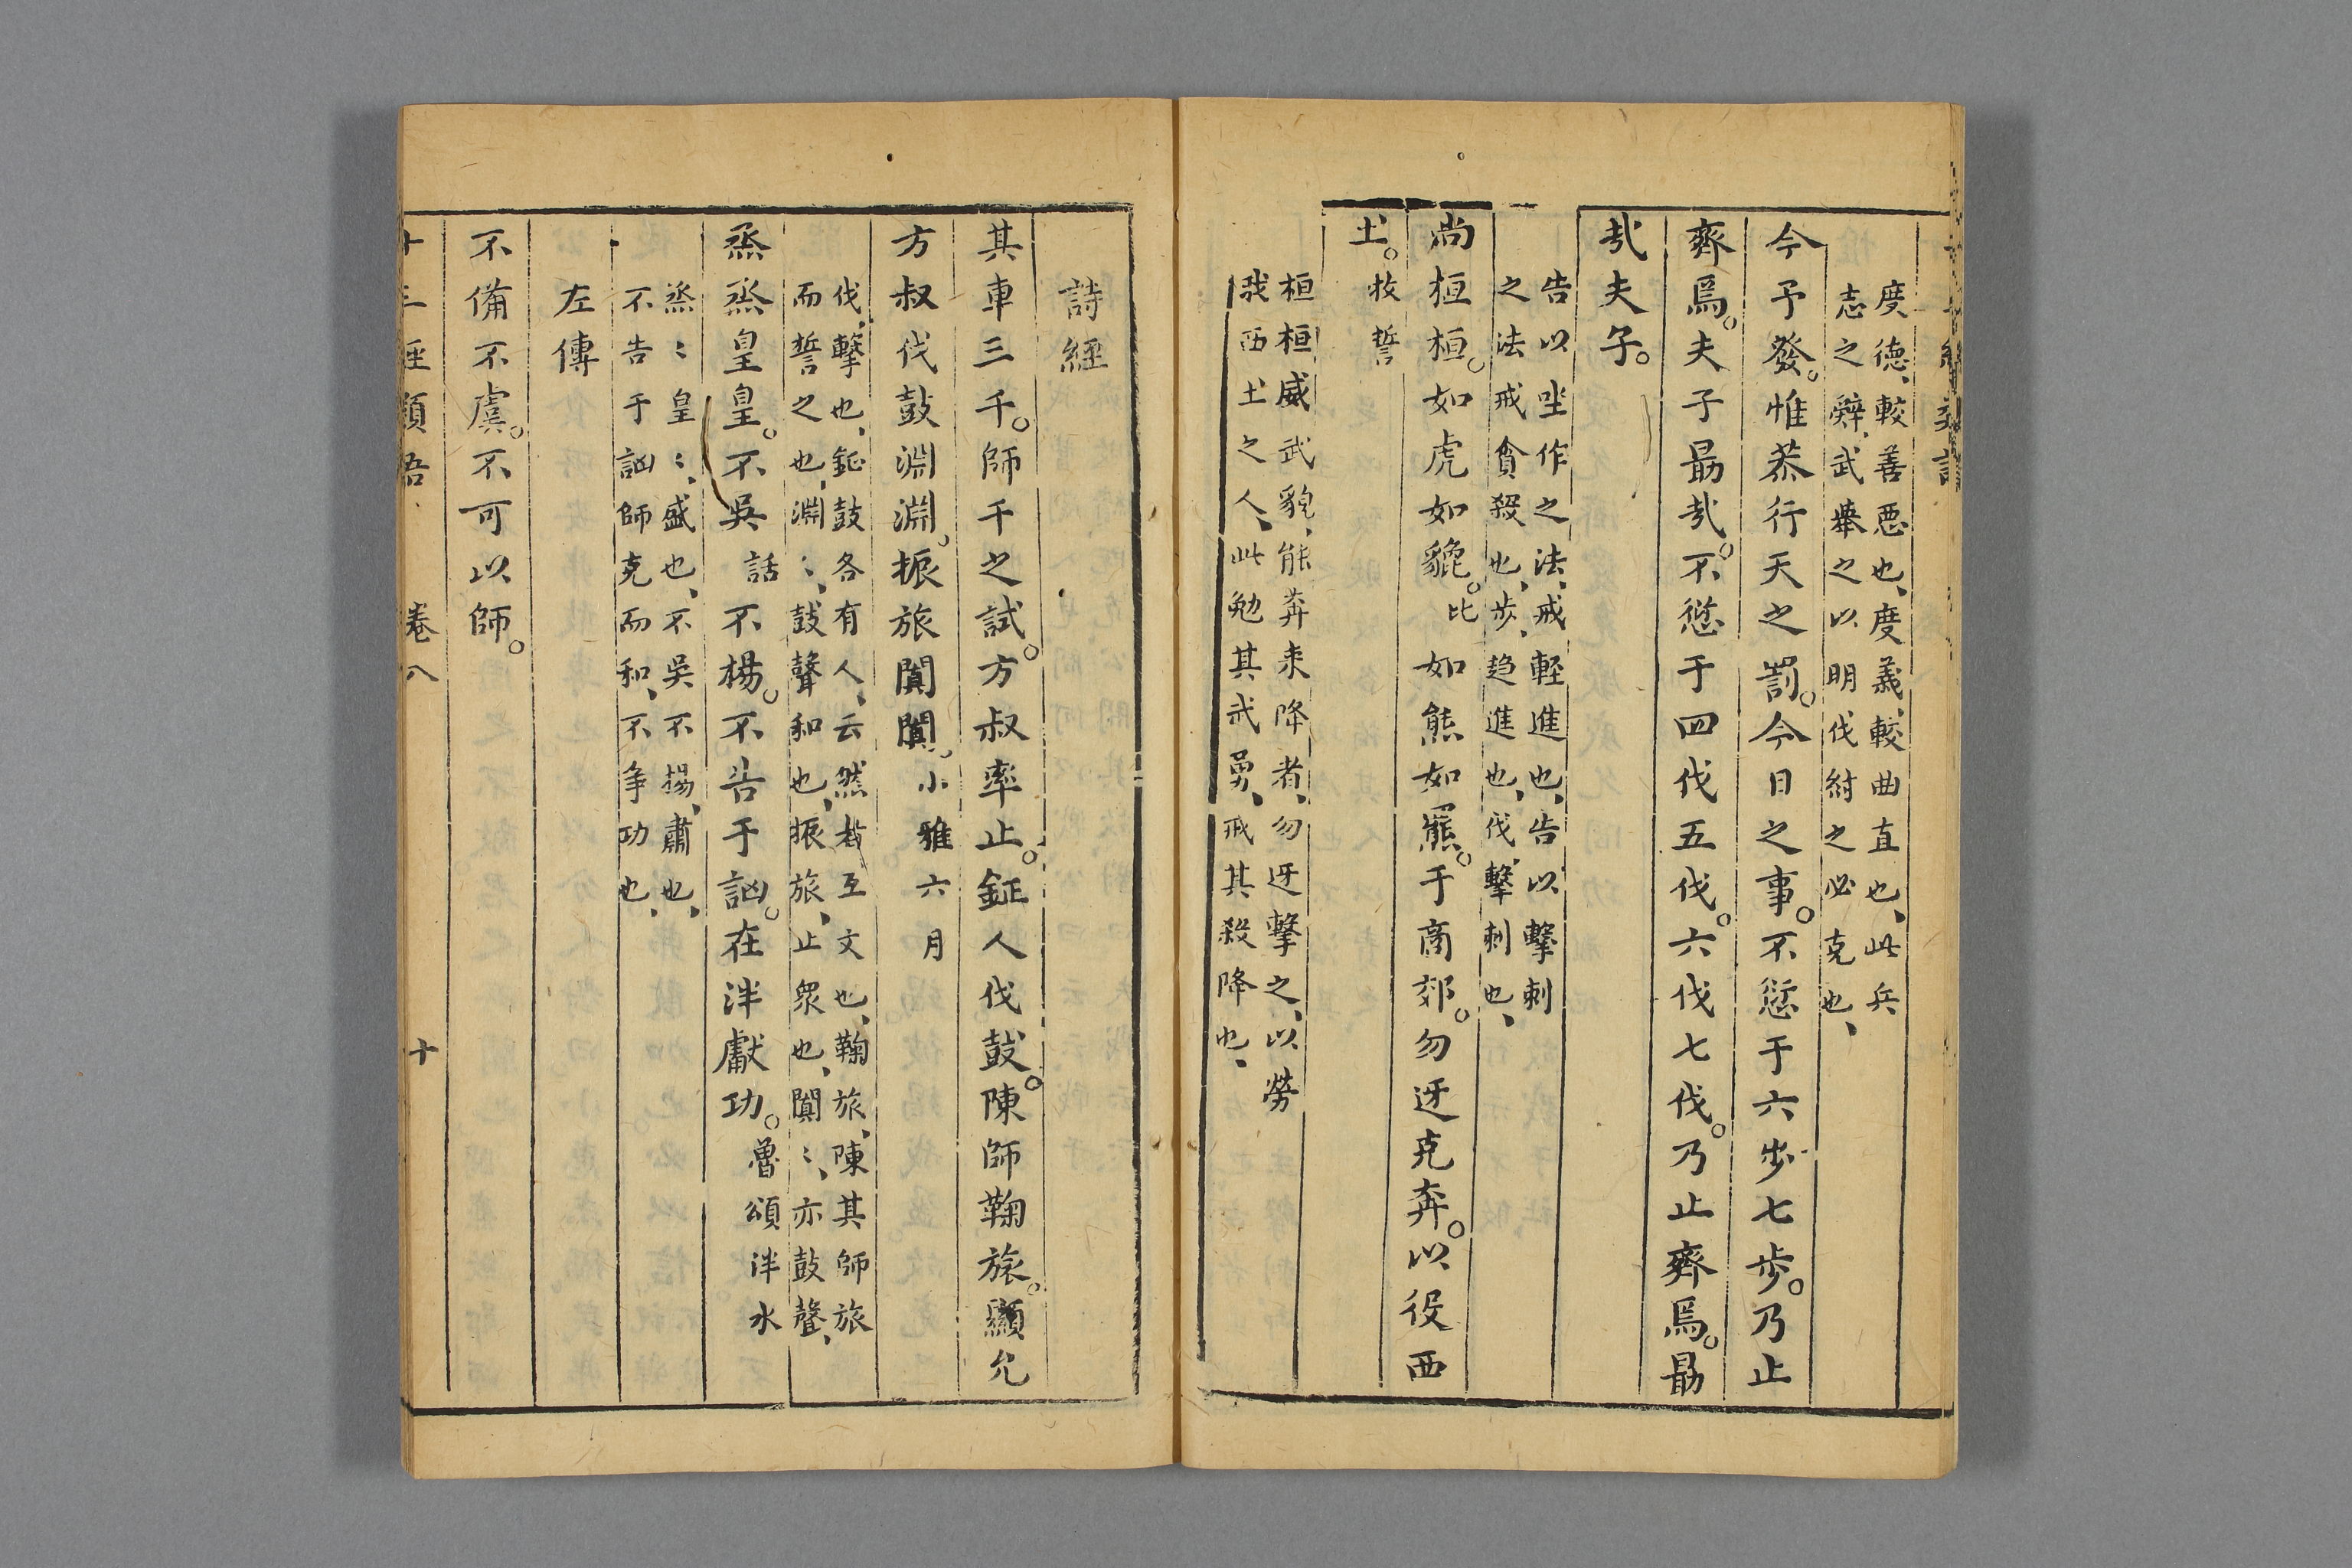 度德、較善惡也、度義、較曲直也、此兵
志之辭、武舉之以明伐紂之必克也、
今予發。惟恭行天之罰。今日之事。不愆于六步七步。乃止
齊焉。夫子勗哉。不愆于四伐五伐。六伐七伐。乃止齊焉。勗
哉夫子。
告以坐作之法、戒輕進也、告以擊刺
之法、戒貪殺也、步、趋進也、伐、擊刺也、
尚桓桓。如虎如貔。比如熊如羆。于商郊。勿迓克奔。以役西
土。牧誓
桓桓威武貌、能奔來降者、勿迓擊之、以勞
我西土之人、此勉其武勇、戒其殺降也、
詩經
其車三千。師干之試。方叔率止。鉦人伐鼓。陳師鞠旅。顯允
方叔伐鼓淵淵。振旅闐闐。小雅六月
伐、擊也、鉦鼓各有人、云然者互文也、鞠旅、陳其師旅
而誓之也、淵〻、鼓聲和也、振旅、止衆也、闐〻、亦鼓聲、
烝烝皇皇。不吳話不楊。不告于訩。在泮獻功。魯頌泮水
烝〻皇〻、盛也、不吳不揚、肅也、
不告于訩師克而和、不争功也、
左傳
不備不虞。不可以師。
十三經類語 卷八 十